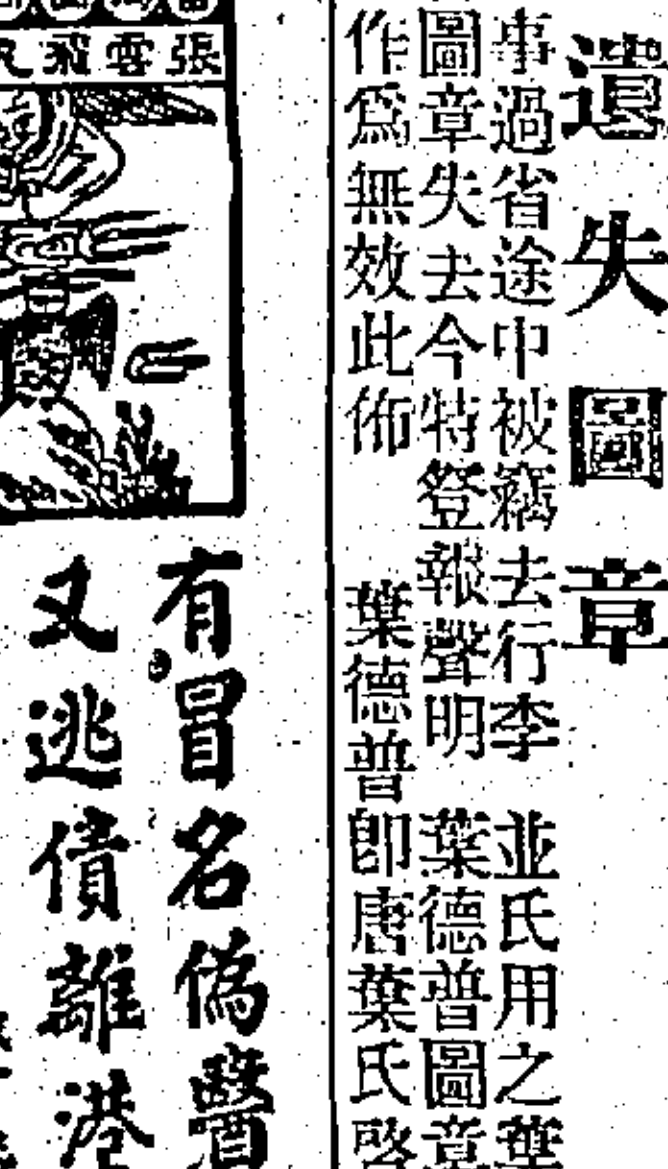 遺失圖章
事過省途中被竊去行李 並氏用之葉
圖章失去今特登報聲明 葉德普圖章
作爲無效此佈 葉德普卽唐葉氏啓
張雲飛
有冒名偽醫
又逃債離港